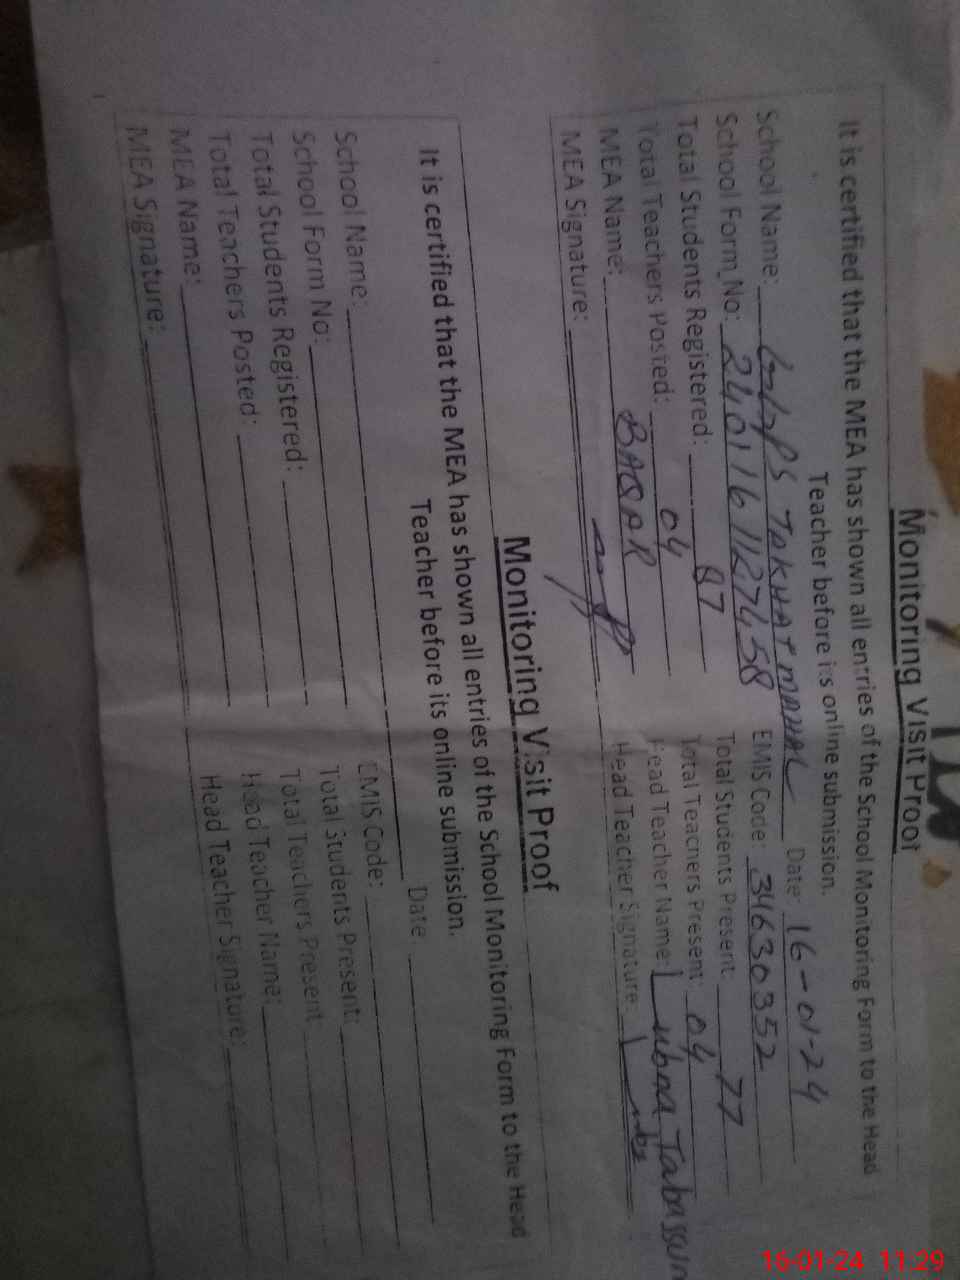 Monitoring Visit Proof
It is certified that the MEA has shown all entries of the School Monitoring Form to the Head
Teacher before its online submission.
School Name: PS TAKHAT MAHAL Date: 16-01-24
School Form No: 2401161127458 EMIS Code: 34630352
Total Students Registered: 87 Total Students Present 77
Total Teachers Posted: 04 Total Teachers Present: 04
MEA Name: BAQAR Head Teacher Name: Lubna Tabassum
MEA Signature: Head Teacher Signature:
Monitoring Visit Proof
It is certified that the MEA has shown all entries of the School Monitoring Form to the Head
Teacher before its online submission.
School Name: Date:
School Form No: EMIS Code:
Total Students Registered: Total Students Present:
Total Teachers Posted: Total Teachers Present
MEA Name: Head Teacher Name:
MEA Signature: Head Teacher Signature:
16-01-24 11:29